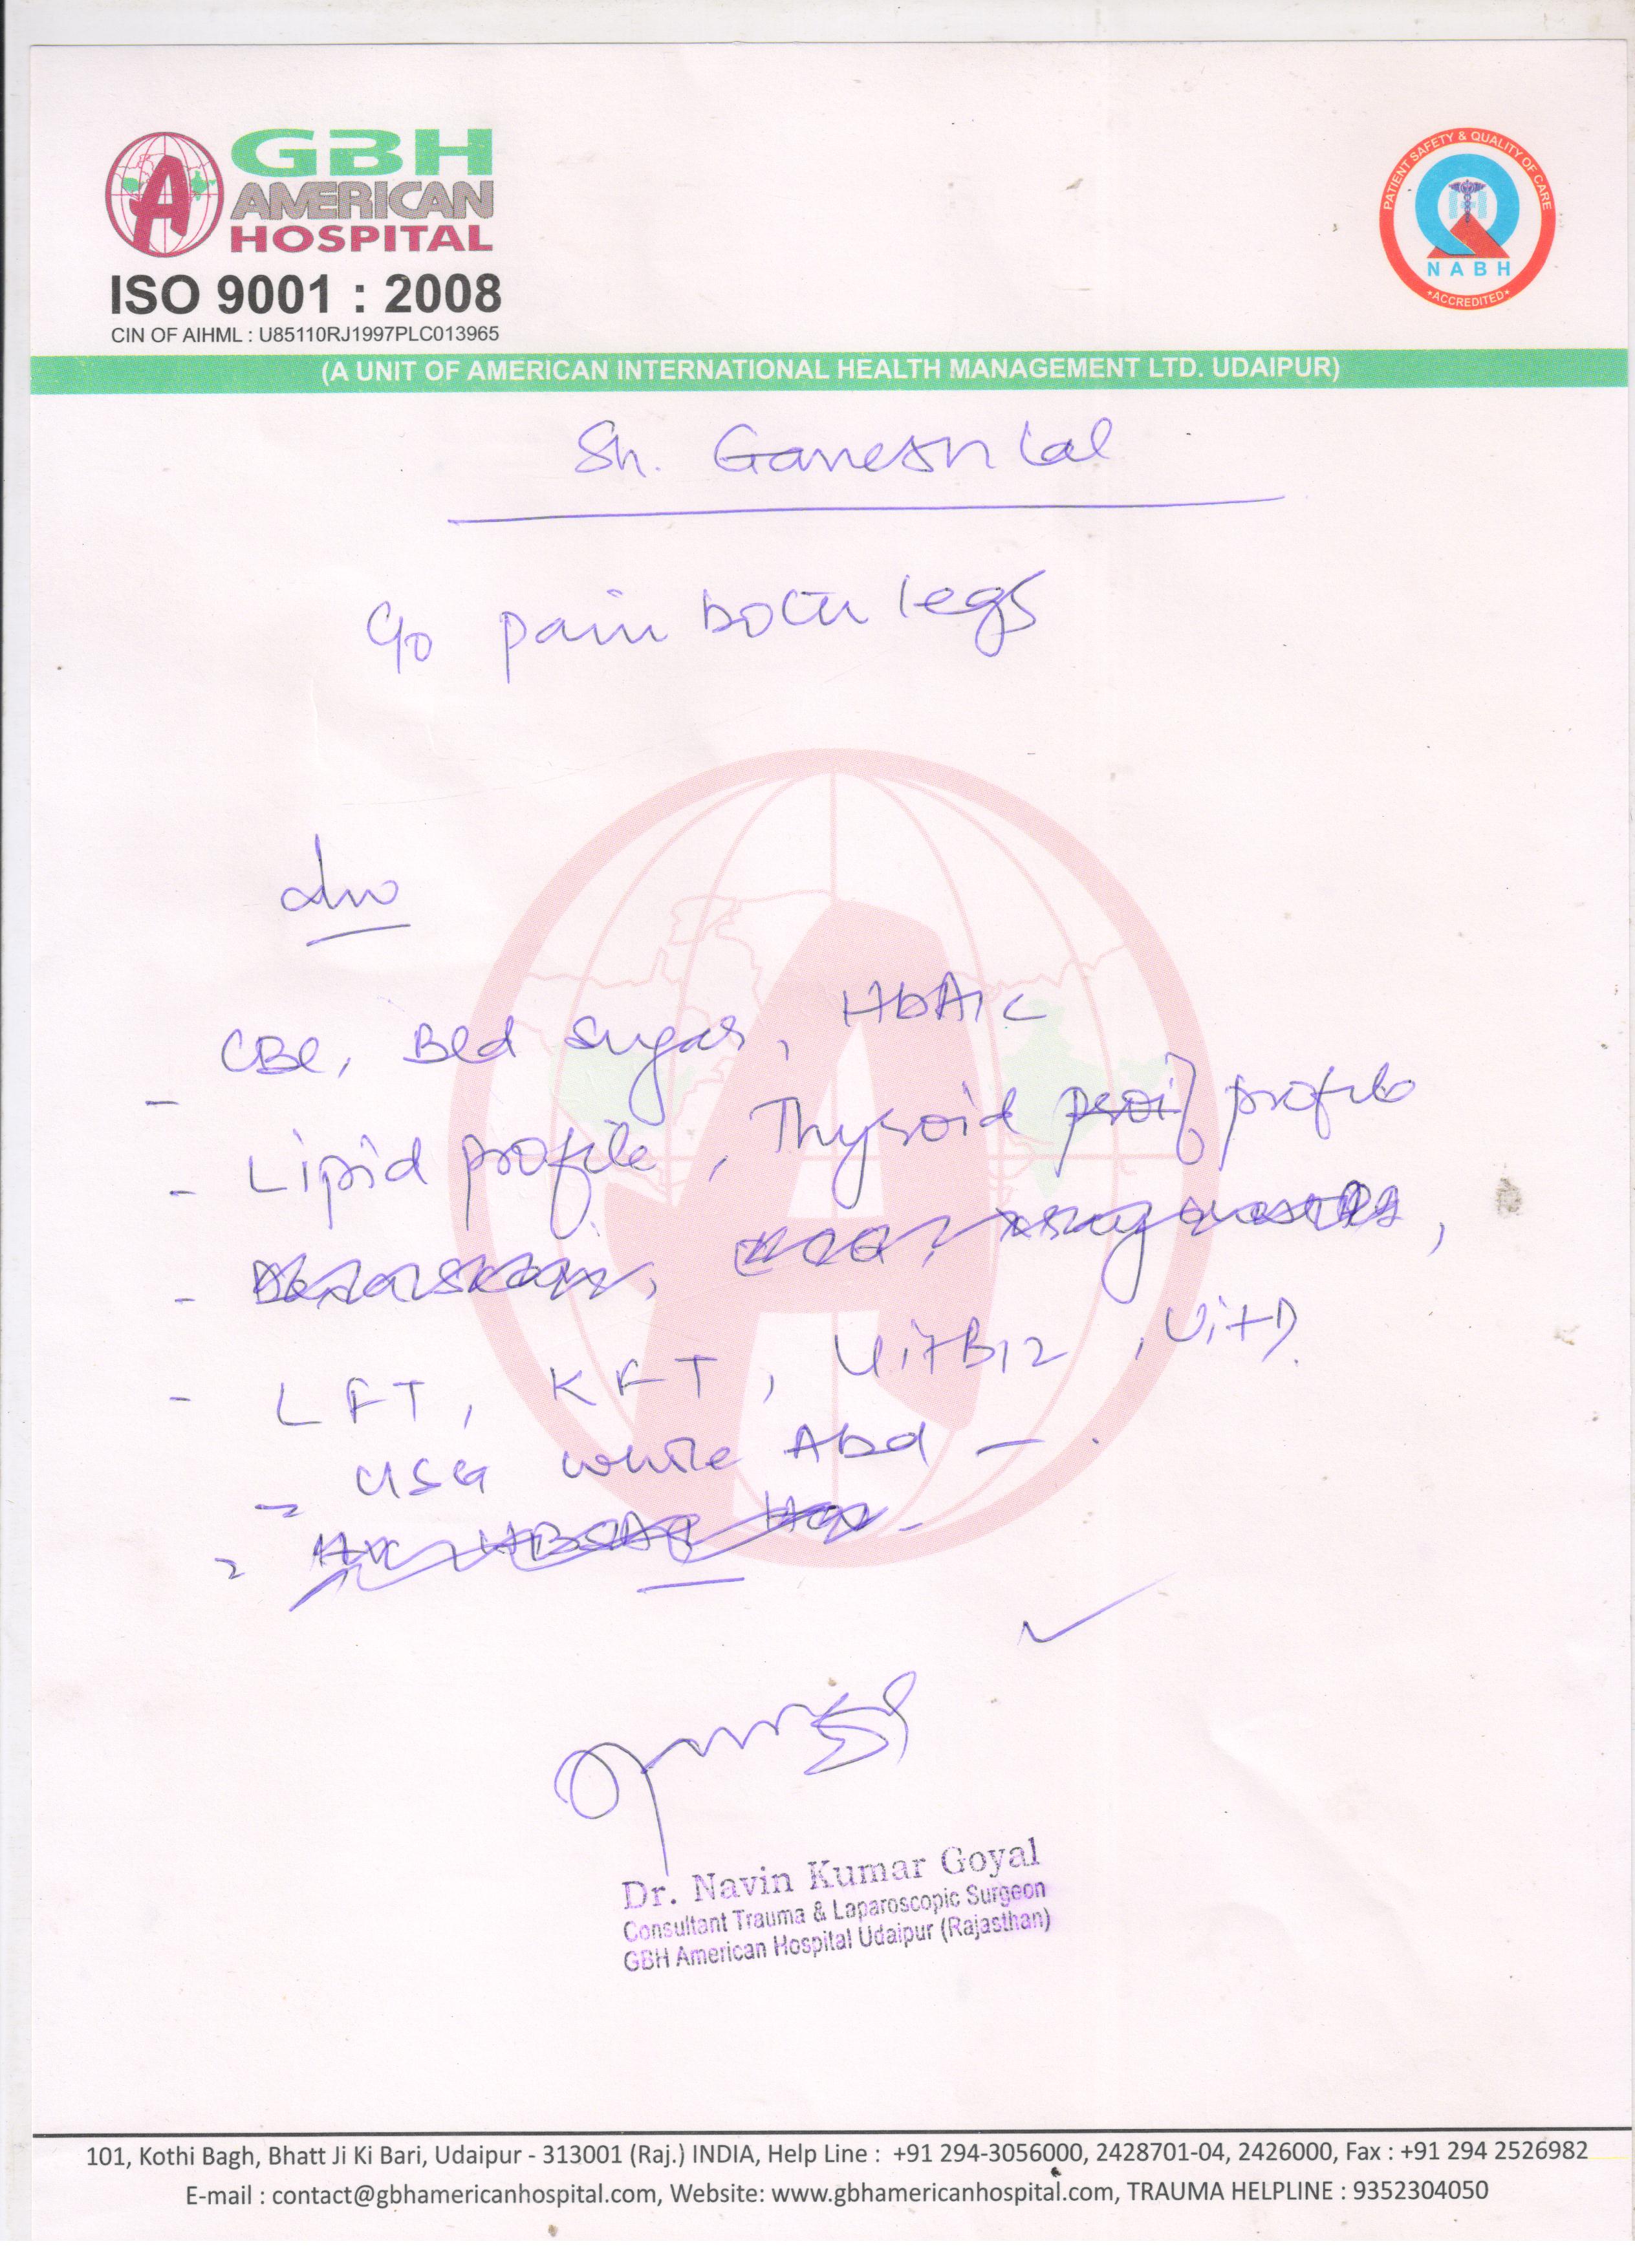 GBH
AMERICAN
HOSPITAL
ISO 9001 : 2008
CIN OF AIHML : U85110RJ1997PLC013965
PATIENT SAFETY & QUALITY OF CARE
NABH
•ACCREDITED•
(A UNIT OF AMERICAN INTERNATIONAL HEALTH MANAGEMENT LTD. UDAIPUR)
Sh. Ganesh Lal
C/o pain both legs
- CBC, Bld sugar, HbA1C
- Lipid profile, Thyroid profile
- LFT, KFT, Vit B12, Vit D.
- USG whole Abd -.
Dr. Navin Kumar Goyal
Consultant Trauma & Laparoscopic Surgeon
GBH American Hospital Udaipur (Rajasthan)
101, Kothi Bagh, Bhatt Ji Ki Bari, Udaipur - 313001 (Raj.) INDIA, Help Line : +91 294-3056000, 2428701-04, 2426000, Fax : +91 294 2526982
E-mail : contact@gbhamericanhospital.com, Website: www.gbhamericanhospital.com, TRAUMA HELPLINE : 9352304050